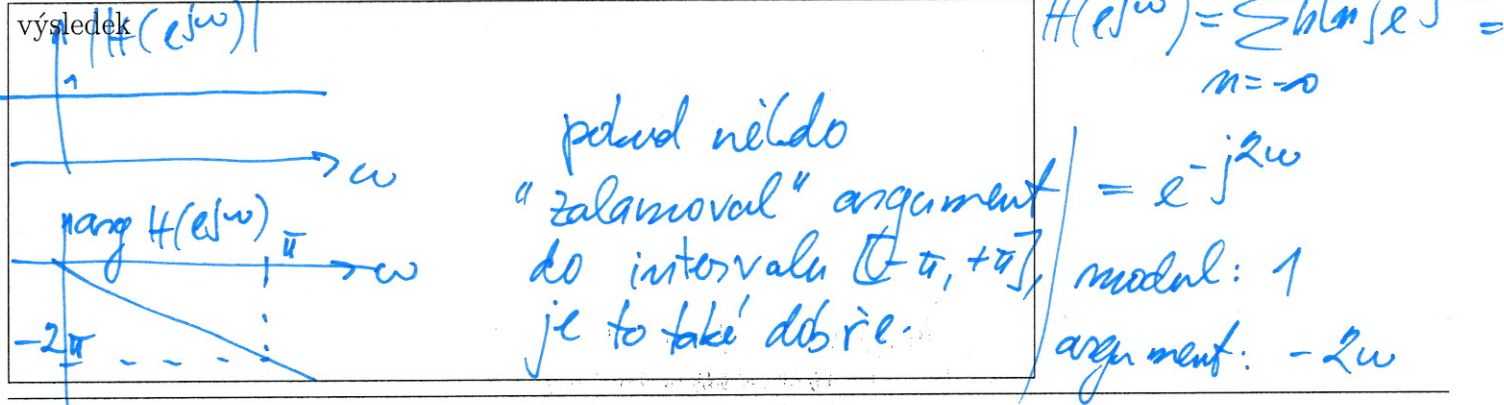 výsledek
|H(e^jω)|
1
ω
arg H(e^jω)
π
ω
-2π
pokud někdo
"zalamoval" argument
do intervalu [-π, +π],
je to také dobře.
H(e^jω) = Σ h[n] e^j =
n=-∞
= e^-j2ω
modul: 1
argument: -2ω